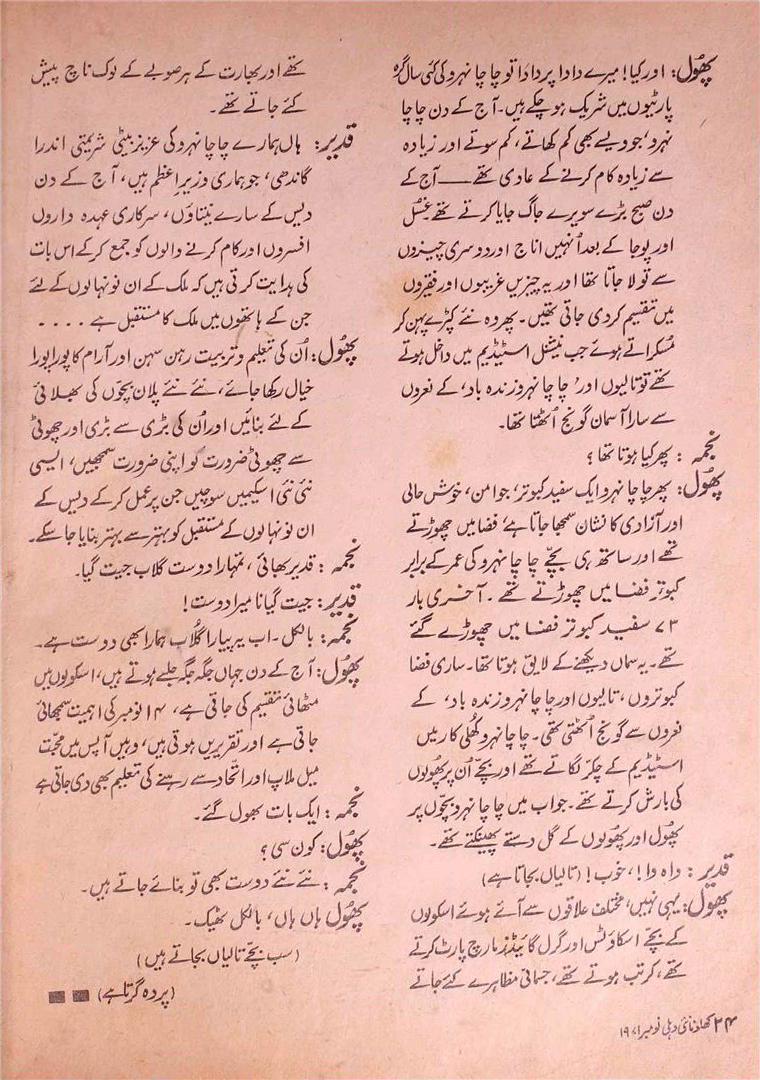 پھُول: اور کیا! میرے دادا پردادا تو چاچا نہرو کی کئی سال گرہ
پارٹیوں میں شریک ہو چکے ہیں۔ آج کے دن چاچا
نہرو، جو ویسے بھی کم کھاتے، کم سوتے اور زیادہ
سے زیادہ کام کرنے کے عادی تھے —— آج کے
دن صبح بڑے سویرے جاگ جایا کرتے تھے۔ غسل
اور پوجا کے بعد اُنہیں اناج اور دوسری چیزوں
سے تولا جاتا تھا اور یہ چیزیں غریبوں اور فقیروں
میں تقسیم کر دی جاتی تھیں۔ پھر وہ نئے کپڑے پہن کر
مُسکراتے ہوئے جب نیشنل اسٹیڈیم میں داخل ہوتے
تھے تو تالیوں اور ’چاچا نہرو زندہ باد‘ کے نعروں
سے سارا آسمان گونج اُٹھتا تھا۔
نجمہ : پھر کیا ہوتا تھا ؟
پھُول: پھر چاچا نہرو ایک سفید کبوتر، جو امن، خوش حالی
اور آزادی کا نشان سمجھا جاتا ہے، فضا میں چھوڑتے
تھے اور ساتھ ہی بچے چاچا نہرو کی عمر کے برابر
کبوتر فضا میں چھوڑتے تھے ۔ آخری بار
۷۳ سفید کبوتر فضا میں چھوڑے گئے
تھے۔ یہ سماں دیکھنے کے لایق ہوتا تھا۔ ساری فضا
کبوتروں، تالیوں اور چاچا نہرو زندہ باد، کے
نعروں سے گونج اُٹھتی تھی۔ چاچا نہرو کھُلی کار میں
اسٹیڈیم کے چکّر لگاتے تھے اور بچے اُن پر پھُولوں
کی بارش کرتے تھے۔ جواب میں چاچا نہرو بچّوں پر
پھُول اور پھُولوں کے گل دستے پھینکتے تھے۔
قدیر : واہ وا!، خوب! (تالیاں بجاتا ہے)
پھُول: یہی نہیں، مختلف علاقوں سے آئے ہوئے اسکولوں
کے بچے اسکاؤٹس اور گرل گائیڈز مارچ پارٹ کرتے
تھے، کرتب ہوتے تھے، جسمانی مظاہرے کئے جاتے
تھے اور بھارت کے ہر صوبے کے لوک ناچ پیش
کئے جاتے تھے۔
قدیر: ہاں ہمارے چاچا نہرو کی عزیز بیٹی شریمتی اندرا
گاندھی، جو ہماری وزیرِ اعظم ہیں، آج کے دن
دیس کے سارے نیتاؤں، سرکاری عہدہ داروں
افسروں اور کام کرنے والوں کو جمع کر کے اس بات
کی ہدایت کرتی ہیں کہ ملک کے ان نونہالوں کے لئے
جن کے ہاتھوں میں ملک کا مستقبل ہے ....
پھُول: اُن کی تعلیم و تربیت رہن سہن اور آرام کا پورا پورا
خیال رکھا جائے، نئے نئے پلان بچّوں کی بھلائی
کے لئے بنائیں اور اُن کی بڑی سے بڑی اور چھوٹی
سے چھوٹی ضرورت کو اپنی ضرورت سمجھیں، ایسی
نئی نئی اسکیمیں سوچیں جن پر عمل کر کے دیس کے
ان نونہالوں کے مستقبل کو بہتر سے بہتر بنایا جا سکے۔
نجمہ : قدیر بھائی، تمہارا دوست گلاب جیت گیا۔
قدیر: جیت گیا نا میرا دوست!
نجمہ: بالکل۔ اب یہ پیارا گلُاب ہمارا بھی دوست ہے۔
پھُول: آج کے دن جہاں جگہ جگہ جلسے ہوتے ہیں، اسکولوں میں
مٹھائی تقسیم کی جاتی ہے، ۱۴ نومبر کی اہمیت سمجھائی
جاتی ہے اور تقریریں ہوتی ہیں، وہیں آپس میں محبّت
میل ملاپ اور اتّحاد سے رہنے کی تعلیم بھی دی جاتی ہے
نجمہ : ایک بات بھول گئے۔
پھُول: کون سی ؟
نجمہ : نئے نئے دوست بھی تو بنائے جاتے ہیں۔
پھُول ہاں ہاں، بالکل ٹھیک۔
(سب بچے تالیاں بجاتے ہیں)
(پردہ گرتا ہے)
۲۴ کھلونا نئی دہلی نومبر ۱۹۷۱